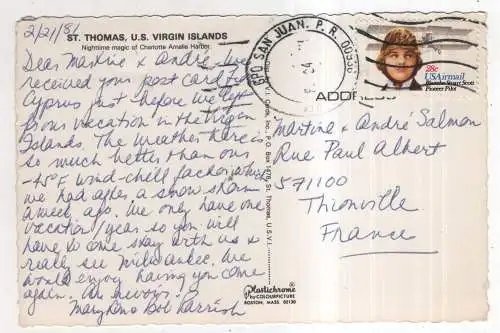 2/21/81
ST. THOMAS, U.S. VIRGIN ISLANDS
Nightime magic of Charlotte Amalie Harbor.
Dear Martine & André. We
received your post card from
Cyprus just before we left
for us vacation in the Virgin
Islands. The weather here is
so much better than our
-45°F wind-chill factor which
we had after a snow storm
a week ago. We only have one
vacation/year so you will
have to come stay with us &
really see Milwaukee. We
would enjoy having you come
again. Au revoir,
Mary Ann & Bob Parrish
V.I. Cards, Inc., P.O. Box 1476, St. Thomas, U.S.V.I.
Plastichrome
by COLOURPICTURE
BOSTON, MASS. 02130
SAN JUAN, P.R. 00936
28c
USAirmail
Blanche Stuart Scott
Pioneer Pilot
ADDRESS
Martine & André Salmon
Rue Paul Albert
571100
Thionville
France